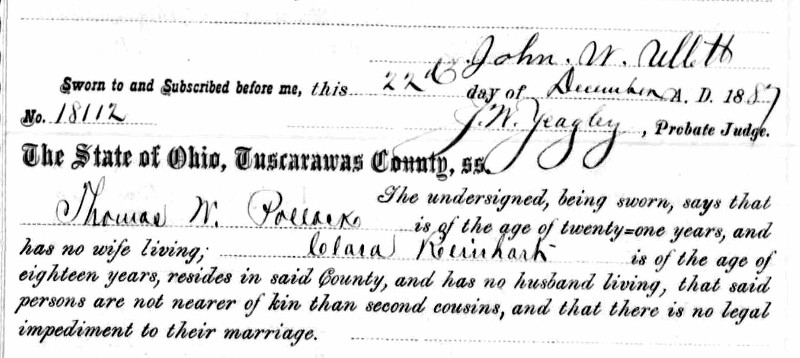 John. W. Ullett
Sworn to and Subscribed before me, this 22d day of December A. D. 1887
No. 18112 J. W. Yeagley, Probate Judge.
The State of Ohio, Tuscarawas County, ss.
The undersigned, being sworn, says that
Thomas W. Pollack is of the age of twenty=one years, and
has no wife living; Clara Reinhart is of the age of
eighteen years, resides in said County, and has no husband living, that said
persons are not nearer of kin than second cousins, and that there is no legal
impediment to their marriage.